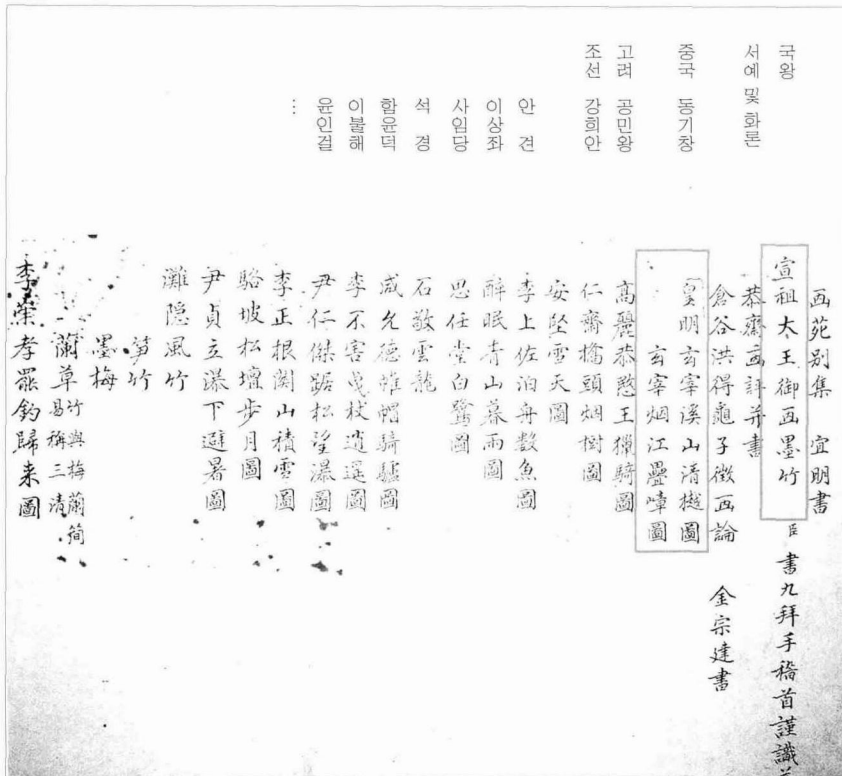 국왕
서예 및 화론
중국 동기창
고려 공민왕
조선 강희안
안 견
이상좌
사임당
석 경
함윤덕
이불해
윤인걸
⋮
画苑别集 宜明書
宣祖大王御画墨竹 臣 書九拜手稽首謹識
恭齋画評并書
倉谷洪得龜子徵画論 金宗建書
皇明玄宰溪山清樾圖
玄宰烟江疊嶂圖
高麗恭愍王獵騎圖
仁齋橋頭烟樹圖
安堅雪天圖
李上佐泊舟數魚圖
醉眠青山暮雨圖
思任堂白鷺圖
石敬雲龍
咸允德帷帽騎驢圖
李不害曳杖逍遥圖
尹仁傑踞松望瀑圖
李正根関山積雪圖
駱坡松壇步月圖
尹貞立瀑下避暑圖
灘隐風竹
笋竹
墨梅
蘭草 竹與梅蘭簡易稱三清
李榮孝罷釣歸来圖